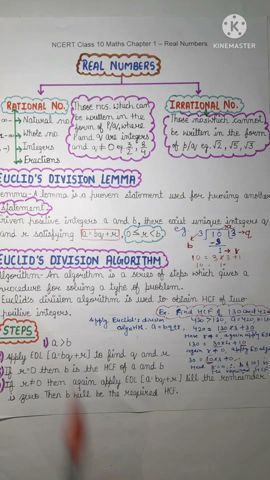 NCERT Class 10 Maths Chapter 1 – Real Numbers
KINEMASTER
REAL NUMBERS
RATIONAL NO.
Natural no.
Whole no.
Integers
Fractions
Those nos. which can
be written in the
form of P/q, where
P and q are integers
and q ≠ 0 eg. 3/2, 8/4
IRRATIONAL NO.
Those nos. which cannot
be written in the form
of p/q eg. √2, √5, √3
EUCLID'S DIVISION LEMMA
Lemma - A lemma is a proven statement used for proving another
statement.
Given positive integers a and b, there exist unique integers q
and r satisfying a = bq + r, 0 ≤ r < b
e.g.
10 = 3 × 3 + 1
EUCLID'S DIVISION ALGORITHM
Algorithm - An algorithm is a series of steps which gives a
procedure for solving a type of problem.
Euclid's division algorithm is used to obtain HCF of two
positive integers.
Ex: Find HCF of 130 and 420
Apply Euclid's division
algorithm. a = bq + r,
430 > 130,
420 = 130 x 3 + 30
130 = 30 x 4 + 10
30 = 10 x 3 + 0
STEPS
1) a > b
Apply EDL [a = bq + r] to find q and r
If r = 0 then b is the HCF of a and b
If r ≠ 0 then again apply EDL [a = bq + r] till the remainder
is zero. Then b will be the required HCF.